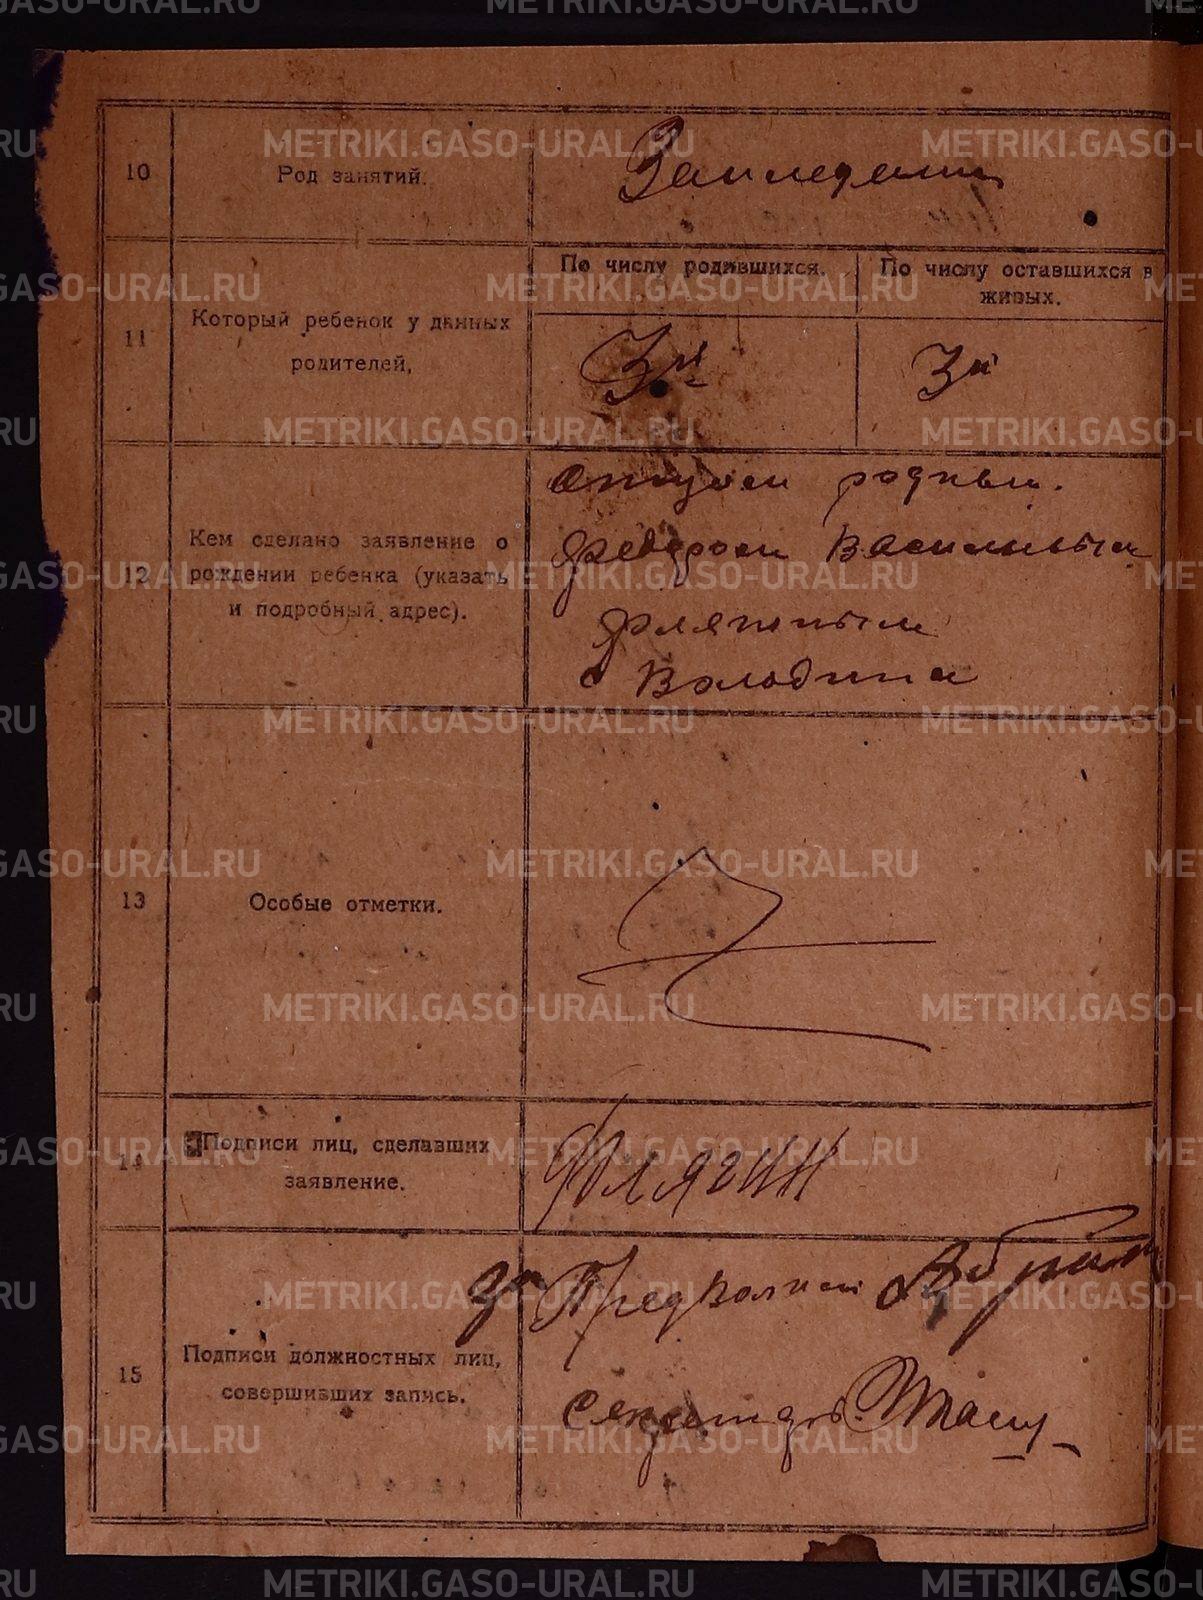 METRIKI.GASO-URAL.RU
10
Род занятий.
Земледелец
11
Который ребенок у данных
родителей,
По числу родившихся.
По числу оставшихся в
живых.
3й
3й
12
Кем сделано заявление о
рождении ребенка (указать
и подробный адрес).
отцом родным.
Федором Васильевым
Флягиным
с Володина
13
Особые отметки.
14
Подписи лиц, сделавших
заявление.
Флягин
15
Подписи должностных лиц,
совершивших запись.
за Пред
Секретарь